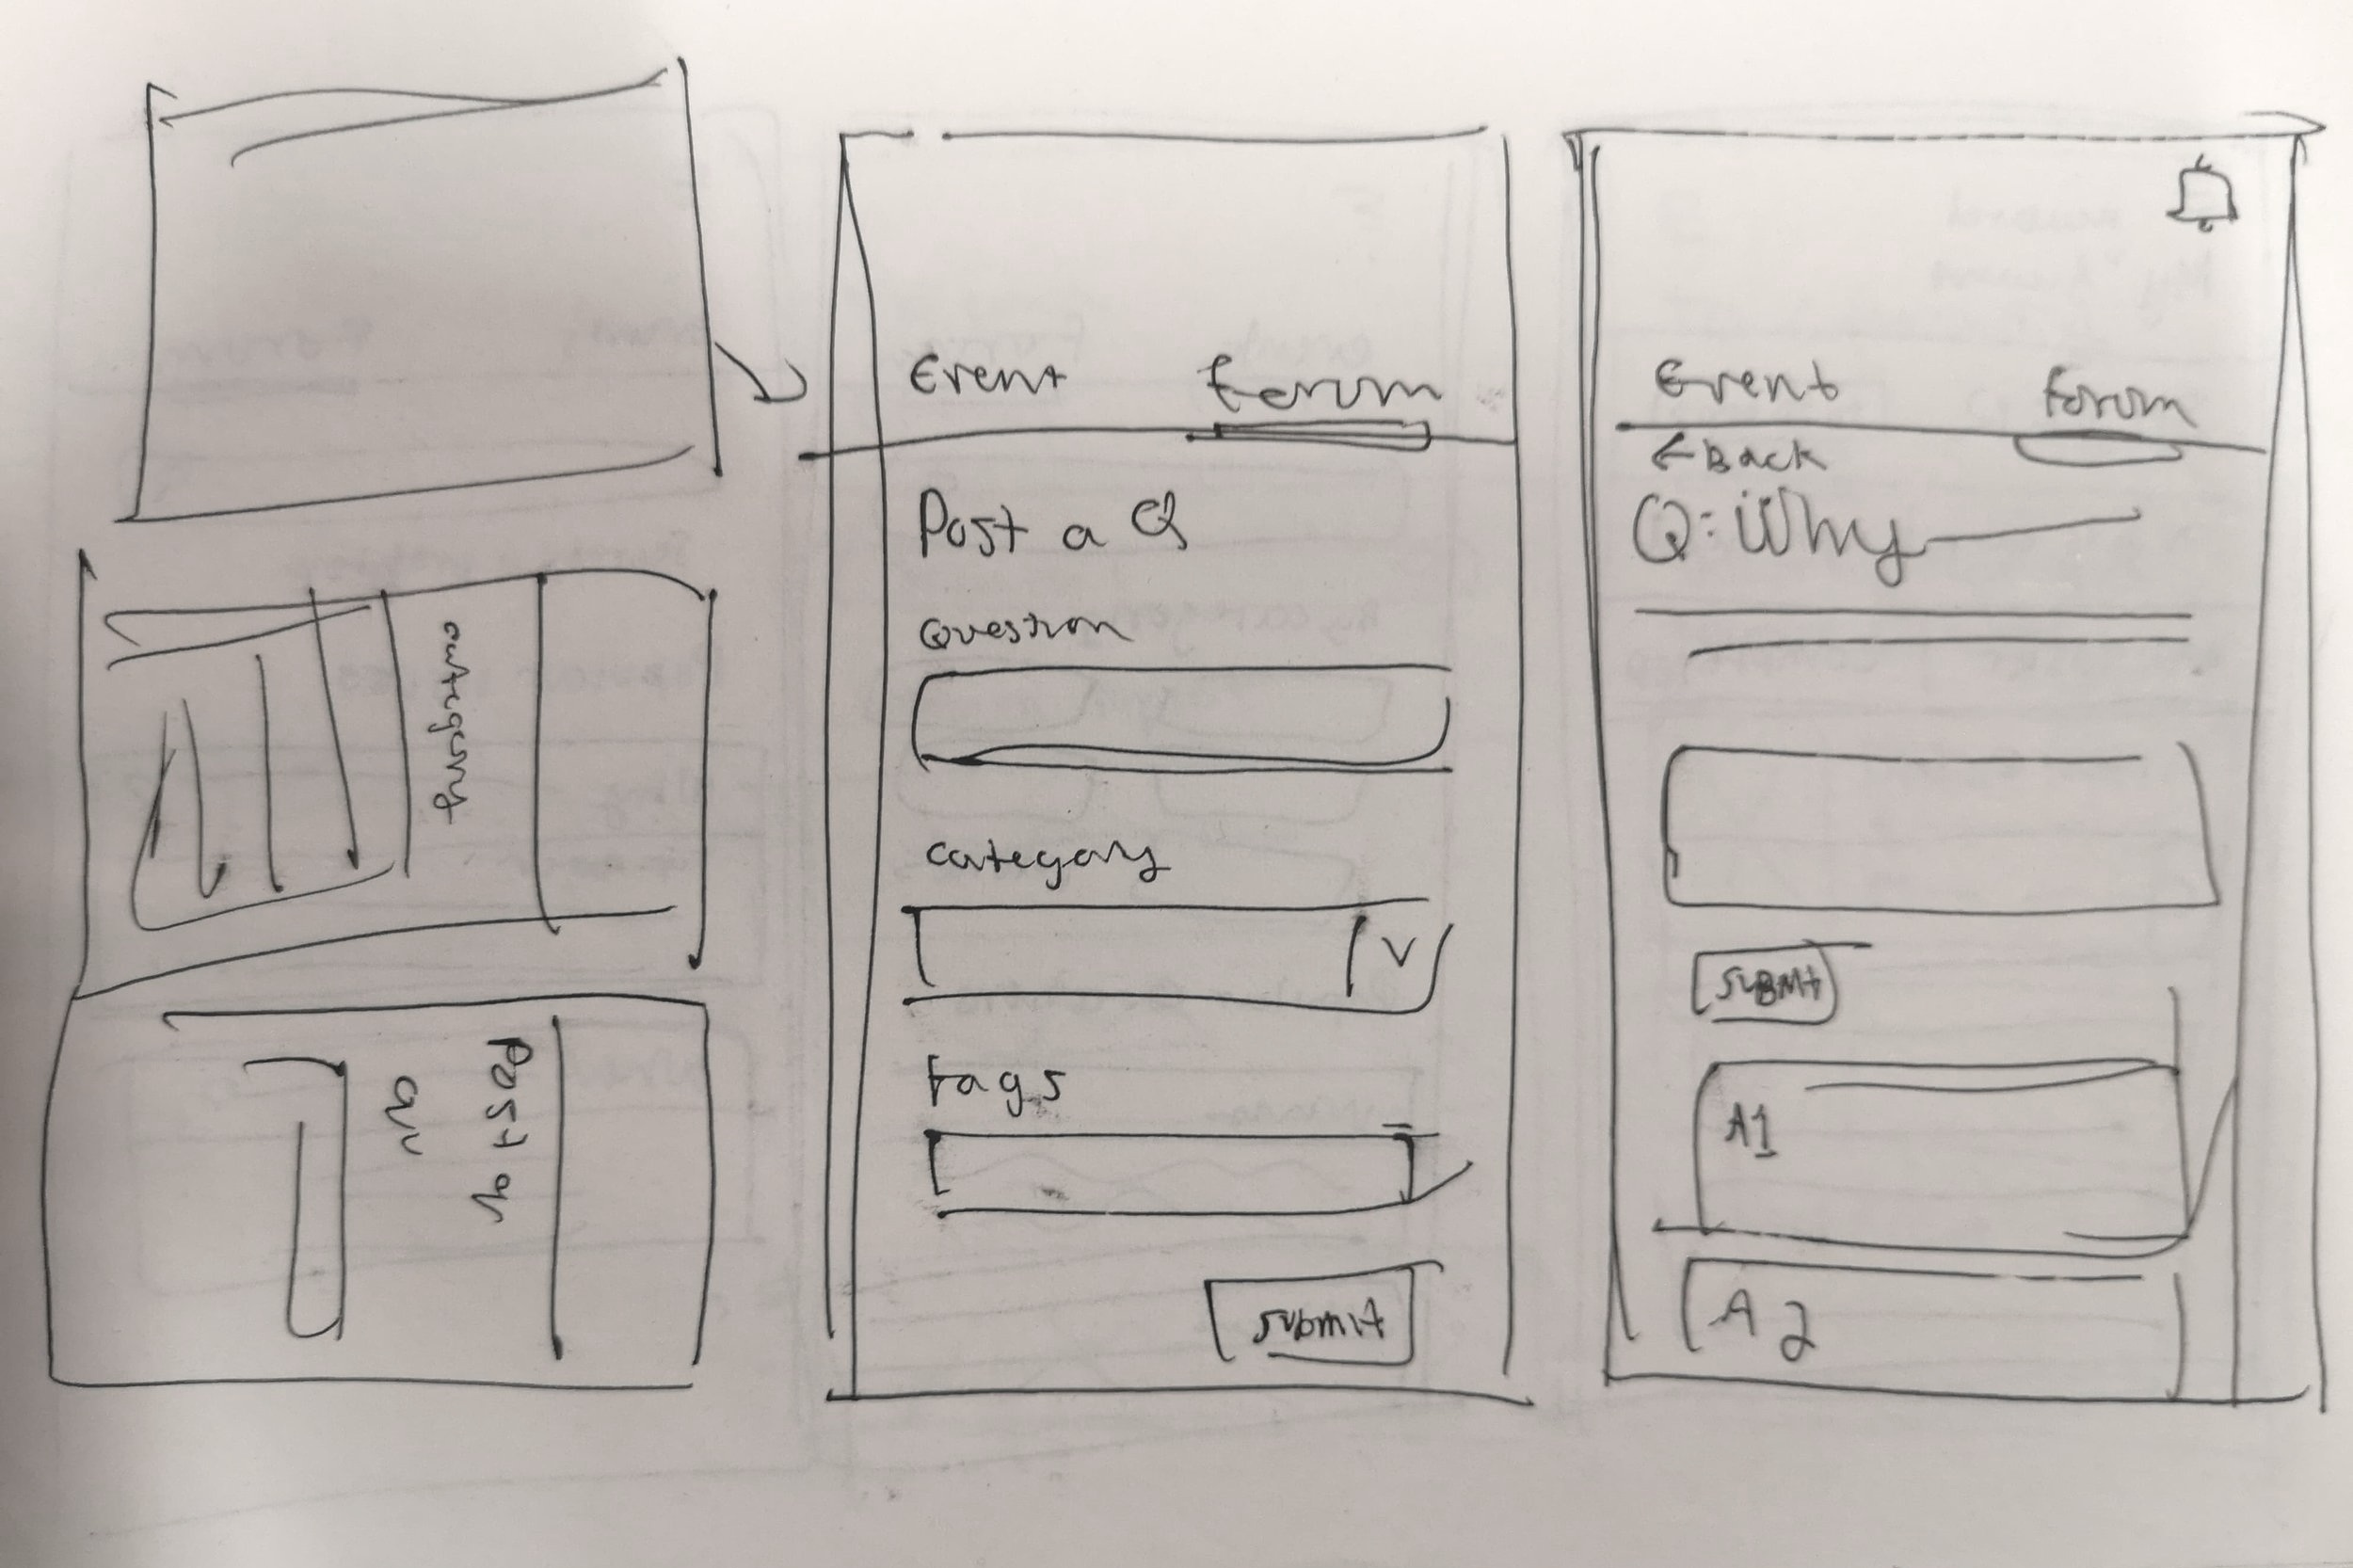 category
Post a
Event Forum
Post a Q
Question
Category
Tags
submit
Event Forum
← Back
Q: Why
SUBMit
A1
A2